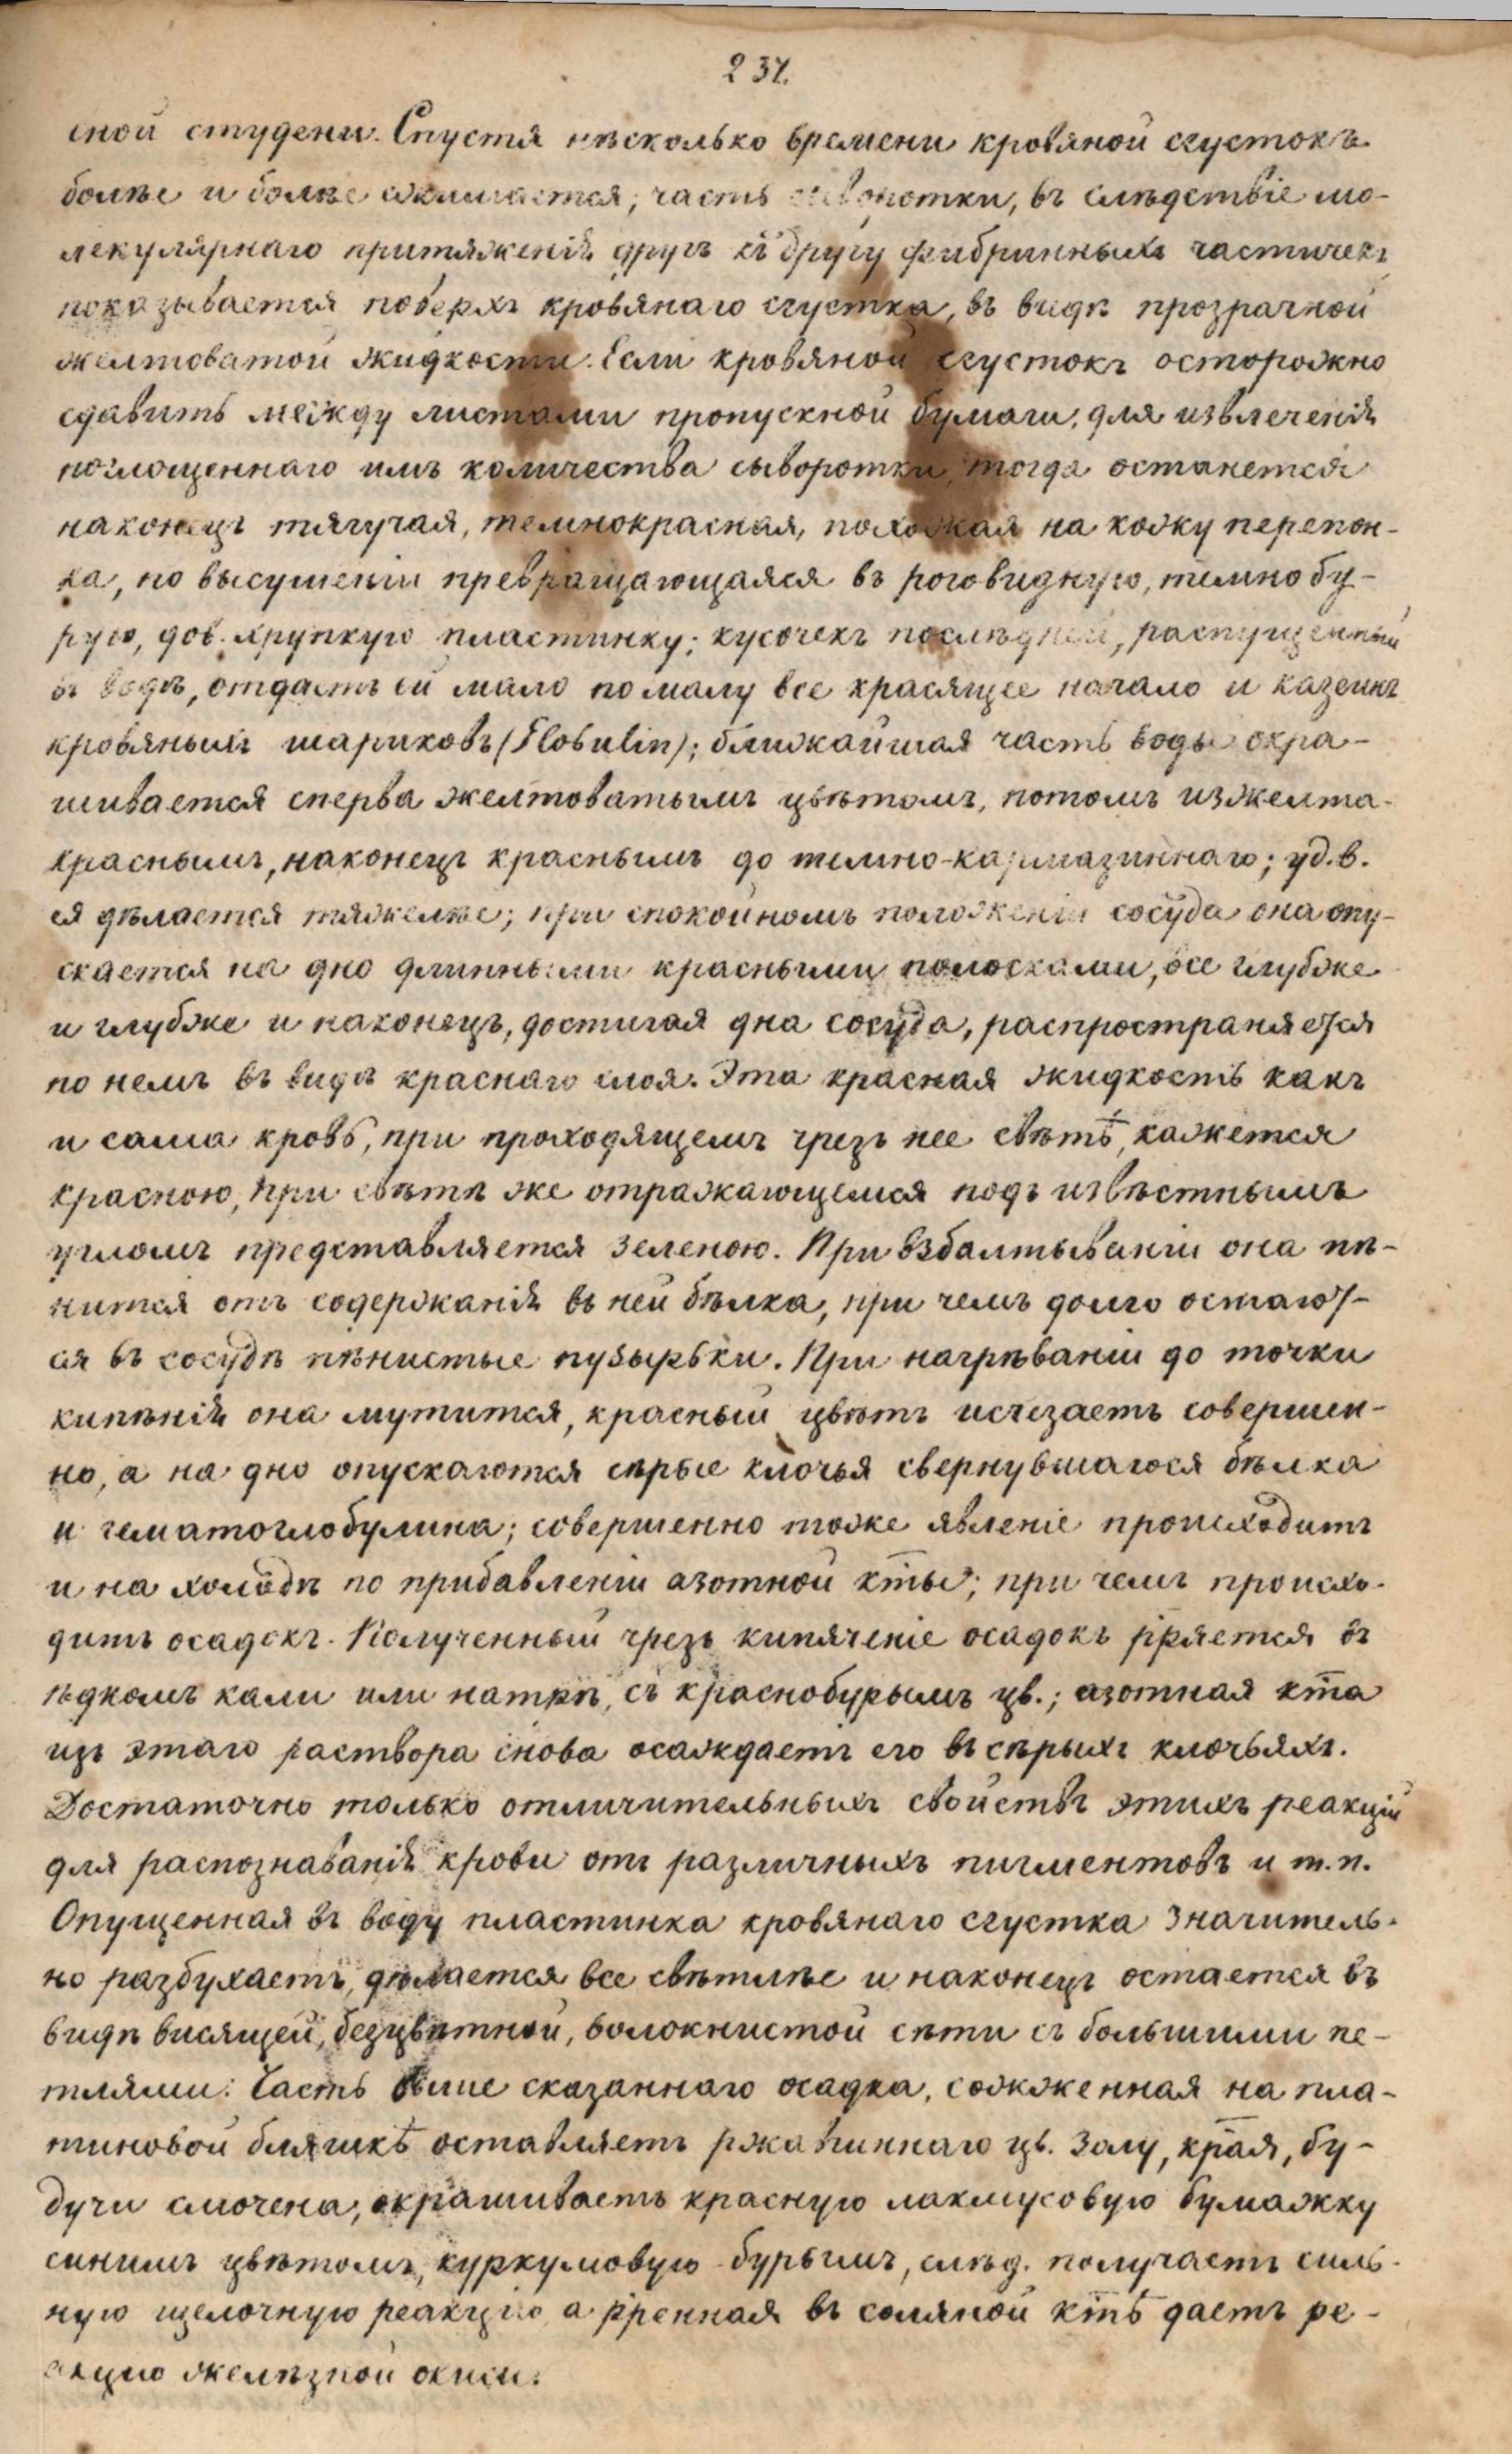 237.
сной студени. Спустя нѣсколько времени кровяной сгустокъ
болѣе и болѣе сжимается; часть сыворотки, въ слѣдствіе мо-
лекулярнаго притяженія другъ къ другу фибринныхъ частичекъ
показывается поверхъ кровянаго сгустка, въ видѣ прозрачной
желтоватой жидкости. Если кровяной сгустокъ осторожно
сдавить между листами пропускной бумаги, для извлеченія
поглощеннаго имъ количества сыворотки, тогда останется
наконецъ тягучая, темнокрасная, похожая на кожу перепон-
ка, по высушеніи превращающаяся въ роговидную, темно бу-
рую, дов. хрупкую пластинку; кусочекъ послѣдней, распущенный
въ водѣ, отдастъ ей мало по малу все красящее начало и казеинъ
кровяныхъ шариковъ (Globulin); ближайшая часть воды окра-
шивается сперва желтоватымъ цвѣтомъ, потомъ изжелта-
краснымъ, наконецъ краснымъ до темно-кармазиннаго; уд. в.
ея дѣлается тяжелѣе; при спокойномъ положеніи сосуда она опу-
скается на дно длинными красными полосками, все глубже
и глубже и наконецъ, достигая дна сосуда, распространяется
по немъ въ видѣ краснаго слоя. Эта красная жидкость какъ
и сама кровь, при проходящемъ чрезъ нее свѣтѣ, кажется
красною, при свѣтѣ же отражающемся подъ извѣстнымъ
угломъ представляется зеленою. При взбалтываніи она пѣ-
нится отъ содержанія въ ней бѣлка, при чемъ долго остают-
ся въ сосудѣ пѣнистые пузырьки. При нагрѣваніи до точки
кипѣнія она мутится, красный цвѣтъ исчезаетъ совершен-
но, а на дно опускаются сѣрые клочья свернувшагося бѣлка
и гематоглобулина; совершенно тоже явленіе происходитъ
и на холодѣ по прибавленіи азотной кты; при чемъ происхо-
дитъ осадокъ. Полученный чрезъ кипяченіе осадокъ рряется въ
ѣдкомъ кали или натрѣ, съ краснобурымъ цв.; азотная кта
изъ этаго раствора снова осаждаетъ его въ сѣрыхъ клочьяхъ.
Достаточно только отличительныхъ свойствъ этихъ реакцій
для распознаванія крови отъ различныхъ пигментовъ и т. п.
Опущенная въ воду пластинка кровянаго сгустка значитель-
но разбухаетъ, дѣлается все свѣтлѣе и наконецъ остается въ
видѣ висящей, безцвѣтной, волокнистой сѣти съ большими пе-
тлями. Часть выше сказаннаго осадка, сожженная на пла-
тиновой бляшкѣ оставляетъ ржавиннаго цв. золу, края, бу-
дучи смочена, окрашиваетъ красную лакмусовую бумажку
синимъ цвѣтомъ, куркумовую - бурымъ, слѣд. получаетъ силь-
ную щелочную реакцію, а рренная въ соляной ктѣ даетъ ре-
акцію желѣзной окиси.